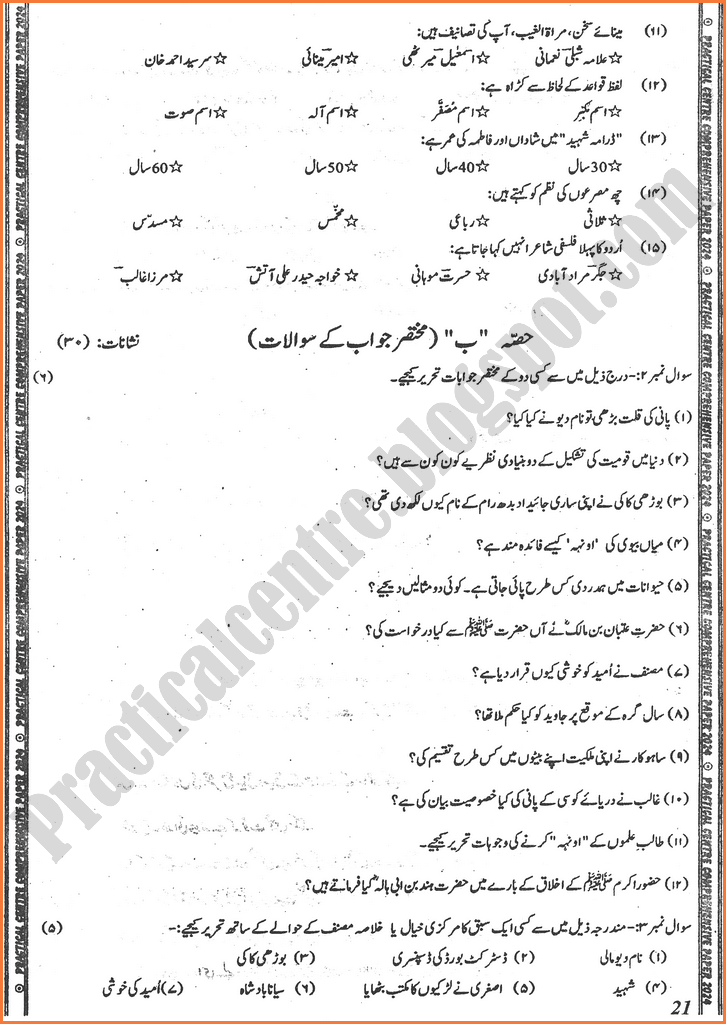 (۱۱) مینائے سخن، مراۃ الغیب، آپ کی تصانیف ہیں:
☆علامہ شبلی نعمانی ☆اسمٰعیل میرٹھی ☆امیر مینائی ☆سرسید احمد خان
(۱۲) لفظ قواعد کے لحاظ سے کڑاہ ہے:
☆اسم مکبّر ☆اسم مُصغّر ☆اسم آلہ ☆اسم صوت
(۱۳) "ڈرامہ شہید" میں شاداں اور فاطمہ کی عمر ہے:
☆30سال ☆40سال ☆50سال ☆60سال
(۱۴) چھ مصرعوں کی نظم کو کہتے ہیں:
☆ثلاثی ☆رباعی ☆مخمّس ☆مسدّس
(۱۵) اُردو کا پہلا فلسفی شاعر انہیں کہا جاتا ہے:
☆جگر مراد آبادی ☆حسرت موہانی ☆خواجہ حیدر علی آتش ☆مرزا غالب
حصّہ "ب" (مختصر جواب کے سوالات) نشانات: (۳۰)
سوال نمبر ۲:- درج ذیل میں سے کسی دو کے مختصر جوابات تحریر کیجیے۔ (۶)
(۱) پانی کی قلت بڑھی تو نام دیو نے کیا کیا؟
(۲) دنیا میں قومیت کی تشکیل کے دو بنیادی نظریے کون کون سے ہیں؟
(۳) بوڑھی کاکی نے اپنی ساری جائیداد بدھ رام کے نام کیوں لکھ دی تھی؟
(۴) میاں بیوی کی 'اونہہ' کیسے فائدہ مند ہے؟
(۵) حیوانات میں ہمدردی کس طرح پائی جاتی ہے۔ کوئی دو مثالیں دیجیے؟
(۶) حضرت عتبان بن مالکؓ نے آں حضرت ﷺ سے کیا درخواست کی؟
(۷) مصنف نے اُمید کو خوشی کیوں قرار دیا ہے؟
(۸) سال گرہ کے موقع پر جاوید کو کیا حکم ملا تھا؟
(۹) ساہوکار نے اپنی ملکیت اپنے بیٹوں میں کس طرح تقسیم کی؟
(۱۰) غالب نے دریائے کوسی کے پانی کی کیا خصوصیت بیان کی ہے؟
(۱۱) طالب علموں کے "اونہہ" کرنے کی وجوہات تحریر کیجیے۔
(۱۲) حضور اکرم ﷺ کے اخلاق کے بارے میں حضرت ہند بن ابی ہالہؓ کیا فرماتے ہیں؟
سوال نمبر ۳:- مندرجہ ذیل میں سے کسی ایک سبق کا مرکزی خیال یا خلاصہ مصنف کے حوالے کے ساتھ تحریر کیجیے:- (۵)
(۱) نام دیو مالی (۲) ڈسٹرکٹ بورڈ کی ڈسپنسری (۳) بوڑھی کاکی
(۴) شہید (۵) اصغری نے لڑکیوں کا مکتب بٹھایا (۶) سیانا بادشاہ (۷) اُمید کی خوشی
21
PRACTICAL CENTRE COMPREHENSIVE PAPER 2024
PRACTICAL CENTRE COMPREHENSIVE PAPER 2024
Practicalcentre.blogspot.com